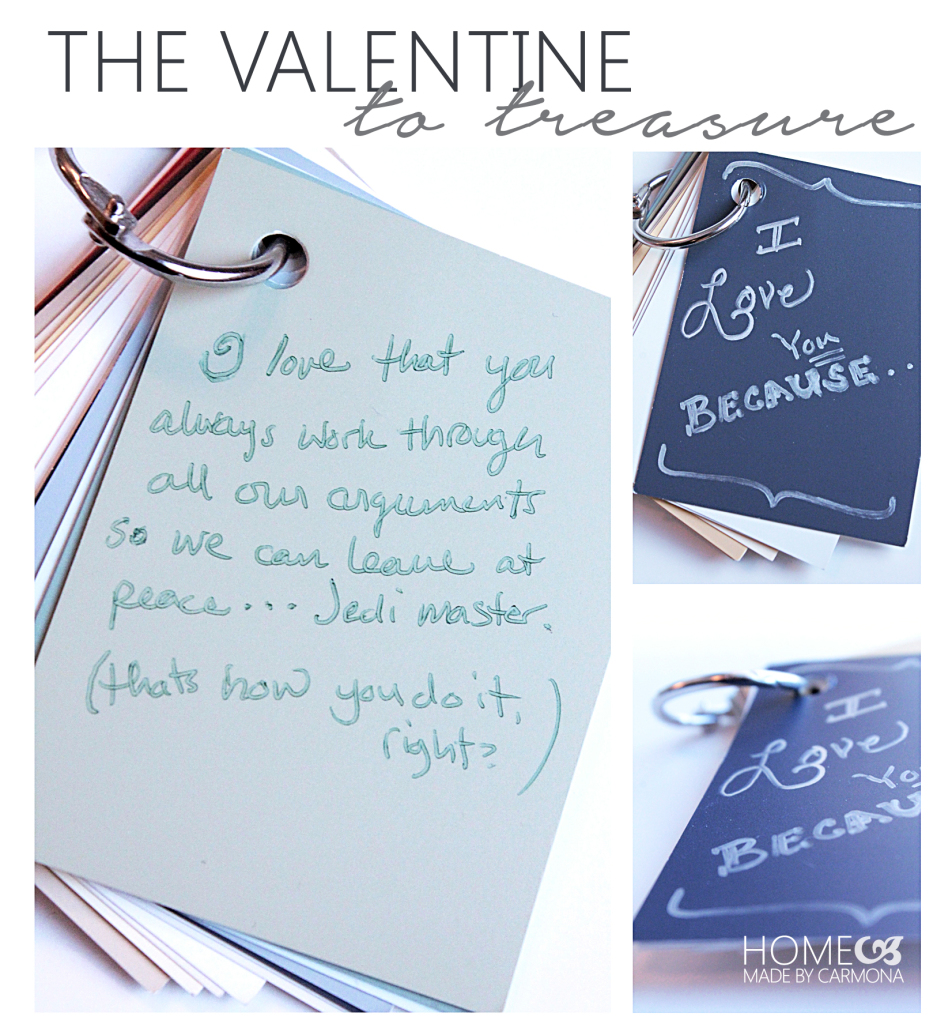 THE VALENTINE
to treasure
I love that you
always work through
all our arguments
so we can leave at
peace... Jedi master.
(thats how you do it,
right?)
I
Love
You
BECAUSE..
I
Love
Yo
BECAU
HOME
MADE BY CARMONA